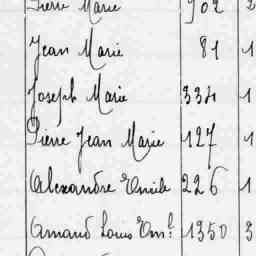 Pierre Marie 902 2
Jean Marie 81 1
Joseph Marie 334 1
Pierre Jean Marie 127 1
Alexandre Emile 226 1
Arnaud Louis Em.l 1350 3